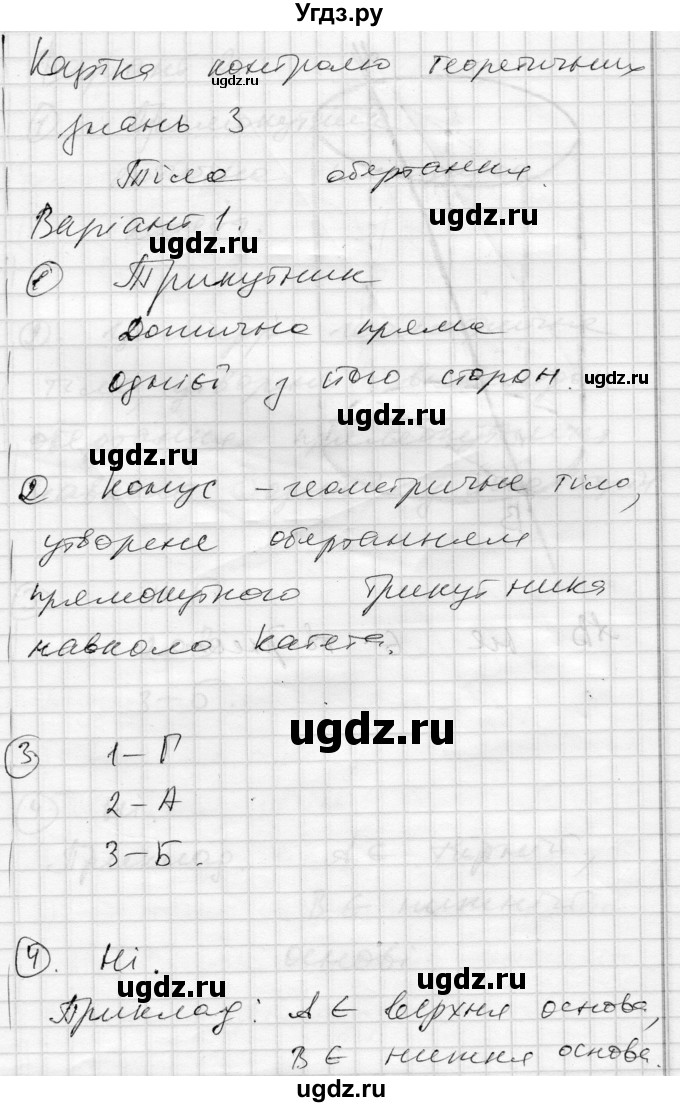 Угдз.ру
Картка контролю теоретичних
знань 3
Тіла обертання.
Варіант 1.
1 Трикутник
Дотична пряма
однієї з його сторон.
2 Конус – геометричне тіло,
утворене обертанням
прямокутного трикутника
навколо катета.
3 1 – Г
2 – А
3 – Б.
4. Ні.
Приклад: A ∈ верхня основа,
B ∈ нижня основа.
ugdz.ru
ugdz.ru
ugdz.ru
ugdz.ru
ugdz.ru
ugdz.ru
ugdz.ru
ugdz.ru
ugdz.ru
ugdz.ru
ugdz.ru